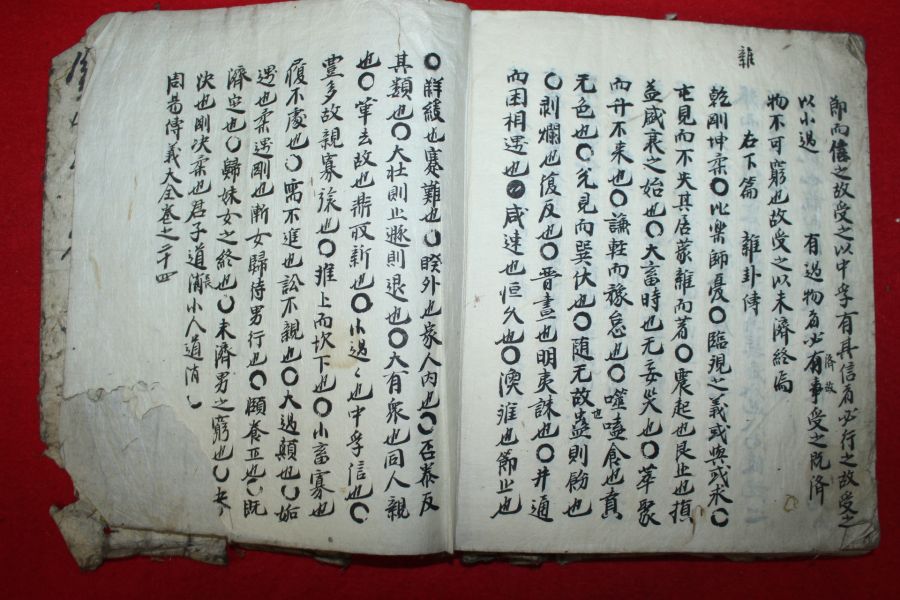 雜
節而信之故受之以中孚有其信者必行之故受之
以小過　有過物者必有事受之既濟
濟故
物不可窮也故受之以未濟終焉
右下篇　雜卦傳
乾剛坤柔〇比樂師憂〇臨現之義或與或求〇
屯見而不失其居蒙雜而著〇震起也艮止也損
益盛衰之始也〇大畜時也无妄災也〇萃聚
而升不来也〇謙軽而豫怠也〇噬嗑食也賁
无色也〇兌見而巽伏也〇随无故蠱則飭也
也
〇剥爛也復反也〇晉晝也明夷誅也〇井通
而困相遇也〇咸速也恒久也〇渙離也節止也
〇解緩也蹇難也〇睽外也家人内也〇否泰反
其類也〇大壯則止遯則退也〇大有衆也同人親
也〇革去故也鼎取新也〇小過〻也中孚信也〇
豊多故親寡旅也〇離上而坎下也〇小畜寡也
履不處也〇需不進也訟不親也〇大過顛也〇姤
遇也柔遇剛也漸女歸待男行也〇頤養正也〇既
濟定也〇歸妹女之終也〇未濟男之窮也〇夬
決也剛决柔也君子道消小人道消〻
長
周易傳義大全卷之二十四